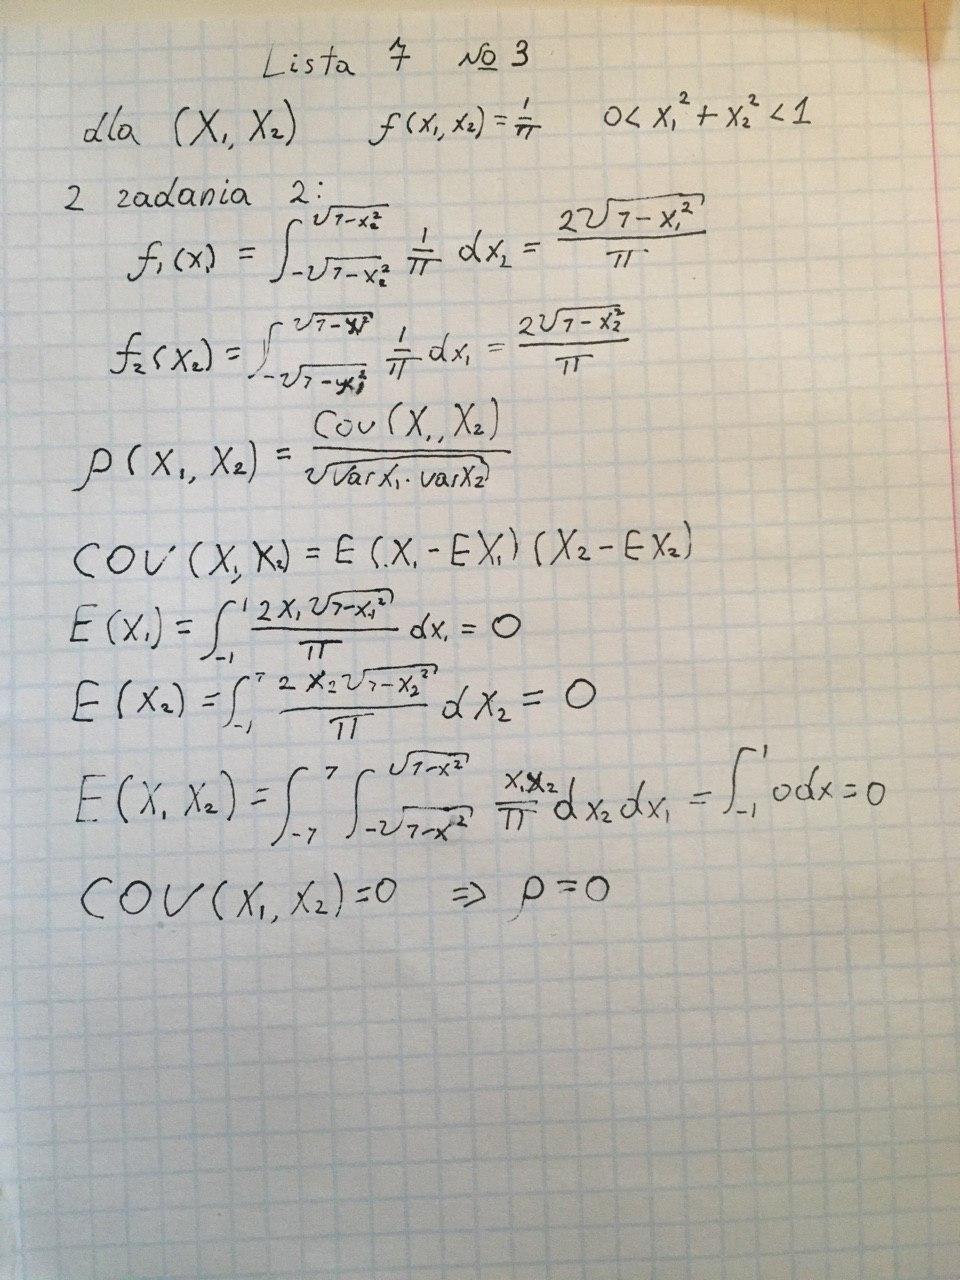 Lista 7 № 3
dla (X₁, X₂) f(x₁, x₂) = 1/π 0 < x₁² + x₂² < 1
z zadania 2:
f₁(x₁) = ∫_{-√(1-x₂²)}^{√(1-x₂²)} 1/π dx₂ = 2√(1-x₁²)/π
f₂(x₂) = ∫_{-√(1-x₁²)}^{√(1-x₁²)} 1/π dx₁ = 2√(1-x₂²)/π
ρ(X₁, X₂) = Cov(X₁, X₂)/√(Var X₁ · var X₂)
COV(X₁, X₂) = E(X₁ - EX₁)(X₂ - EX₂)
E(X₁) = ∫_{-1}^{1} 2x₁√(1-x₁²)/π dx₁ = 0
E(X₂) = ∫_{-1}^{1} 2x₂√(1-x₂²)/π dx₂ = 0
E(X₁ X₂) = ∫_{-1}^{1} ∫_{-√(1-x²)}^{√(1-x²)} x₁x₂/π dx₂ dx₁ = ∫_{-1}^{1} 0dx = 0
COV(X₁, X₂) = 0 ⇒ ρ = 0